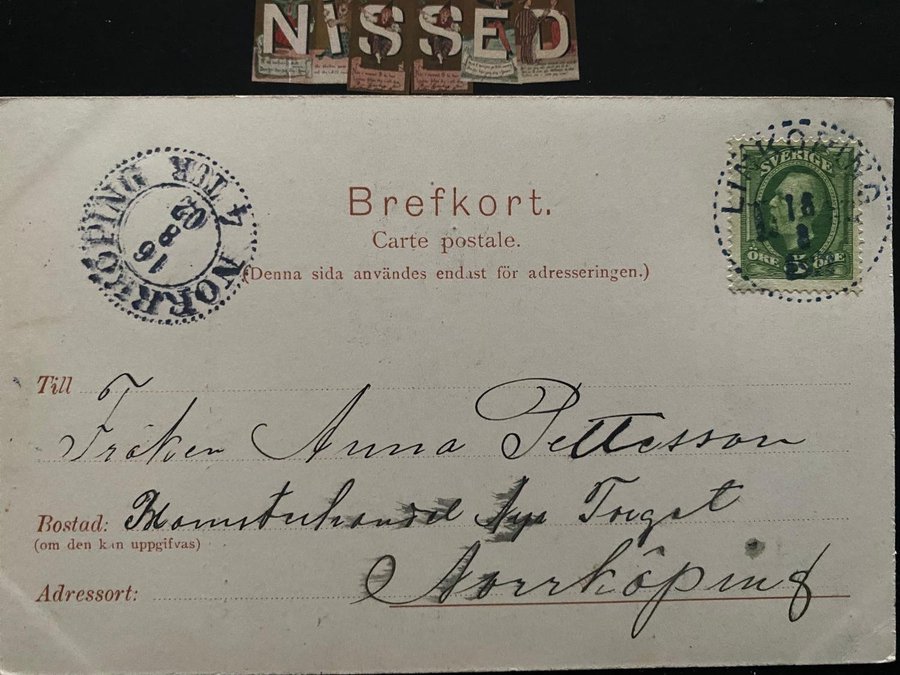 NISSED
NORRKÖPING
4 TUR
16
8
02
LINKÖPING
16
8
SVERIGE
ÖRE 5 ÖRE
Brefkort.
Carte postale.
(Denna sida användes endast för adresseringen.)
Till
Fröken Anna Pettersson
Bostad: Blomsterhandel Nya Torget
(om den kan uppgifvas)
Adressort: Norrköping